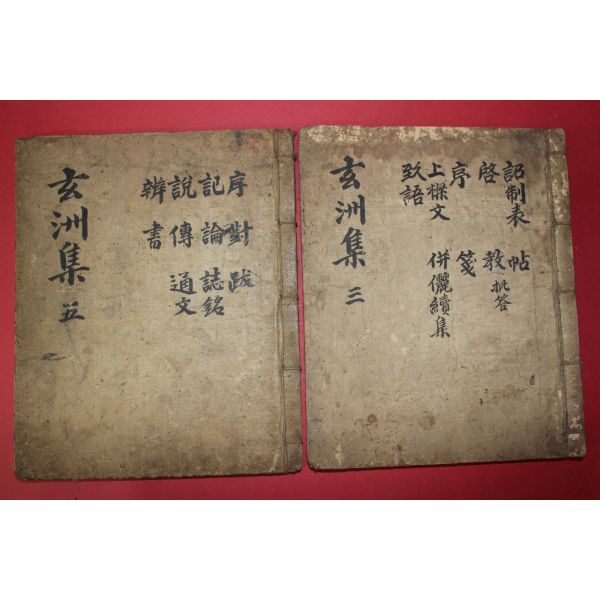 玄洲集 五
序 對 跋
記 論 誌銘
說 傳 通文
辨 書
玄洲集 三
詔制表 帖
啓 教 批答
序 箋
上樑文 倂儷續集
致語